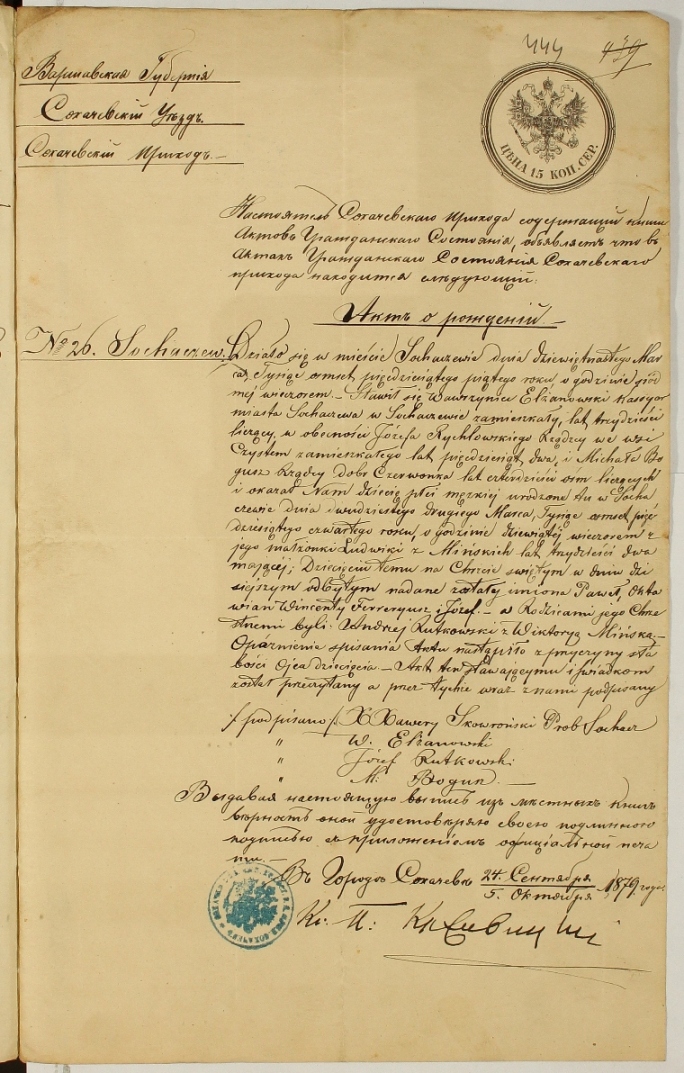 444 439
Варшавская Губернія
Сохачевскій Уѣздъ.
Сохачевскій Приходъ.—
ЦѢНА 15 КОП. СЕР.
Настоятель Сохачевскаго прихода содержащій книги
Актовъ Гражданскаго Состоянія, объявляетъ что въ
Актахъ Гражданскаго Состоянія Сохачевскаго
прихода находится слѣдующій:
Актъ о рожденій.—
№ 26. Sochaczew. Działo się w mieście Sochaczewie dnia dziewiętnastego Mar
ca, Tysiąc ośmset pięćdziesiątego piątego roku, o godzinie siód
mej wieczorem.— Stawił się Wawrzyniec Elżanowski Kassyer
miasta Sochaczewa w Sochaczewie zamieszkały, lat trzydzieści
liczący, w obecności Józefa Rychłowskiego Rządcy we wsi
Czystem zamieszkałego lat pięćdziesiąt dwa, i Michała Bo
gusz Rządcy dobr Czerwonka lat czterdzieści ośm liczących
i okazał Nam dziecię płci męzkiej urodzone tu w Socha
czewie dnia dwudziestego drugiego Marca, Tysiąc ośmset pięć
dziesiątego czwartego roku, o godzinie dziewiątej wieczorem z
jego małżonki Ludwiki z Mińskich lat trzydzieści dwa
mającej; Dziecięciu temu na Chrzcie świętym w dniu dzi
siejszym odbytym nadane zostały imiona Paweł, Okta
wian Wincenty Ferreryusz i Józef.— a Rodzicami jego Chrze
stnemi byli: Andrzej Rutkowski z Wiktoryą Mińską.—
Opóźnienie spisania Aktu nastąpiło z przyczyny sła
bości Ojca dziecięcia.— Akt ten stawającemu i świadkom
został przeczytany a przez tychże wraz z nami podpisany
/: podpisano :/ X Xawery Skowroński Prob Sochacz
" W. Elżanowski
" Józef Rutkowski
" M: Bogusz.—
Выдавая настоящую выпись изъ мѣстныхъ книгъ
вѣрность оной удостовѣряю своею подлинною
подписью съ приложеніемъ офиціальной печа
ти.—
Въ Городѣ Сохачевѣ 24. Сентября
5. Октября 1879 года
Кс. П: